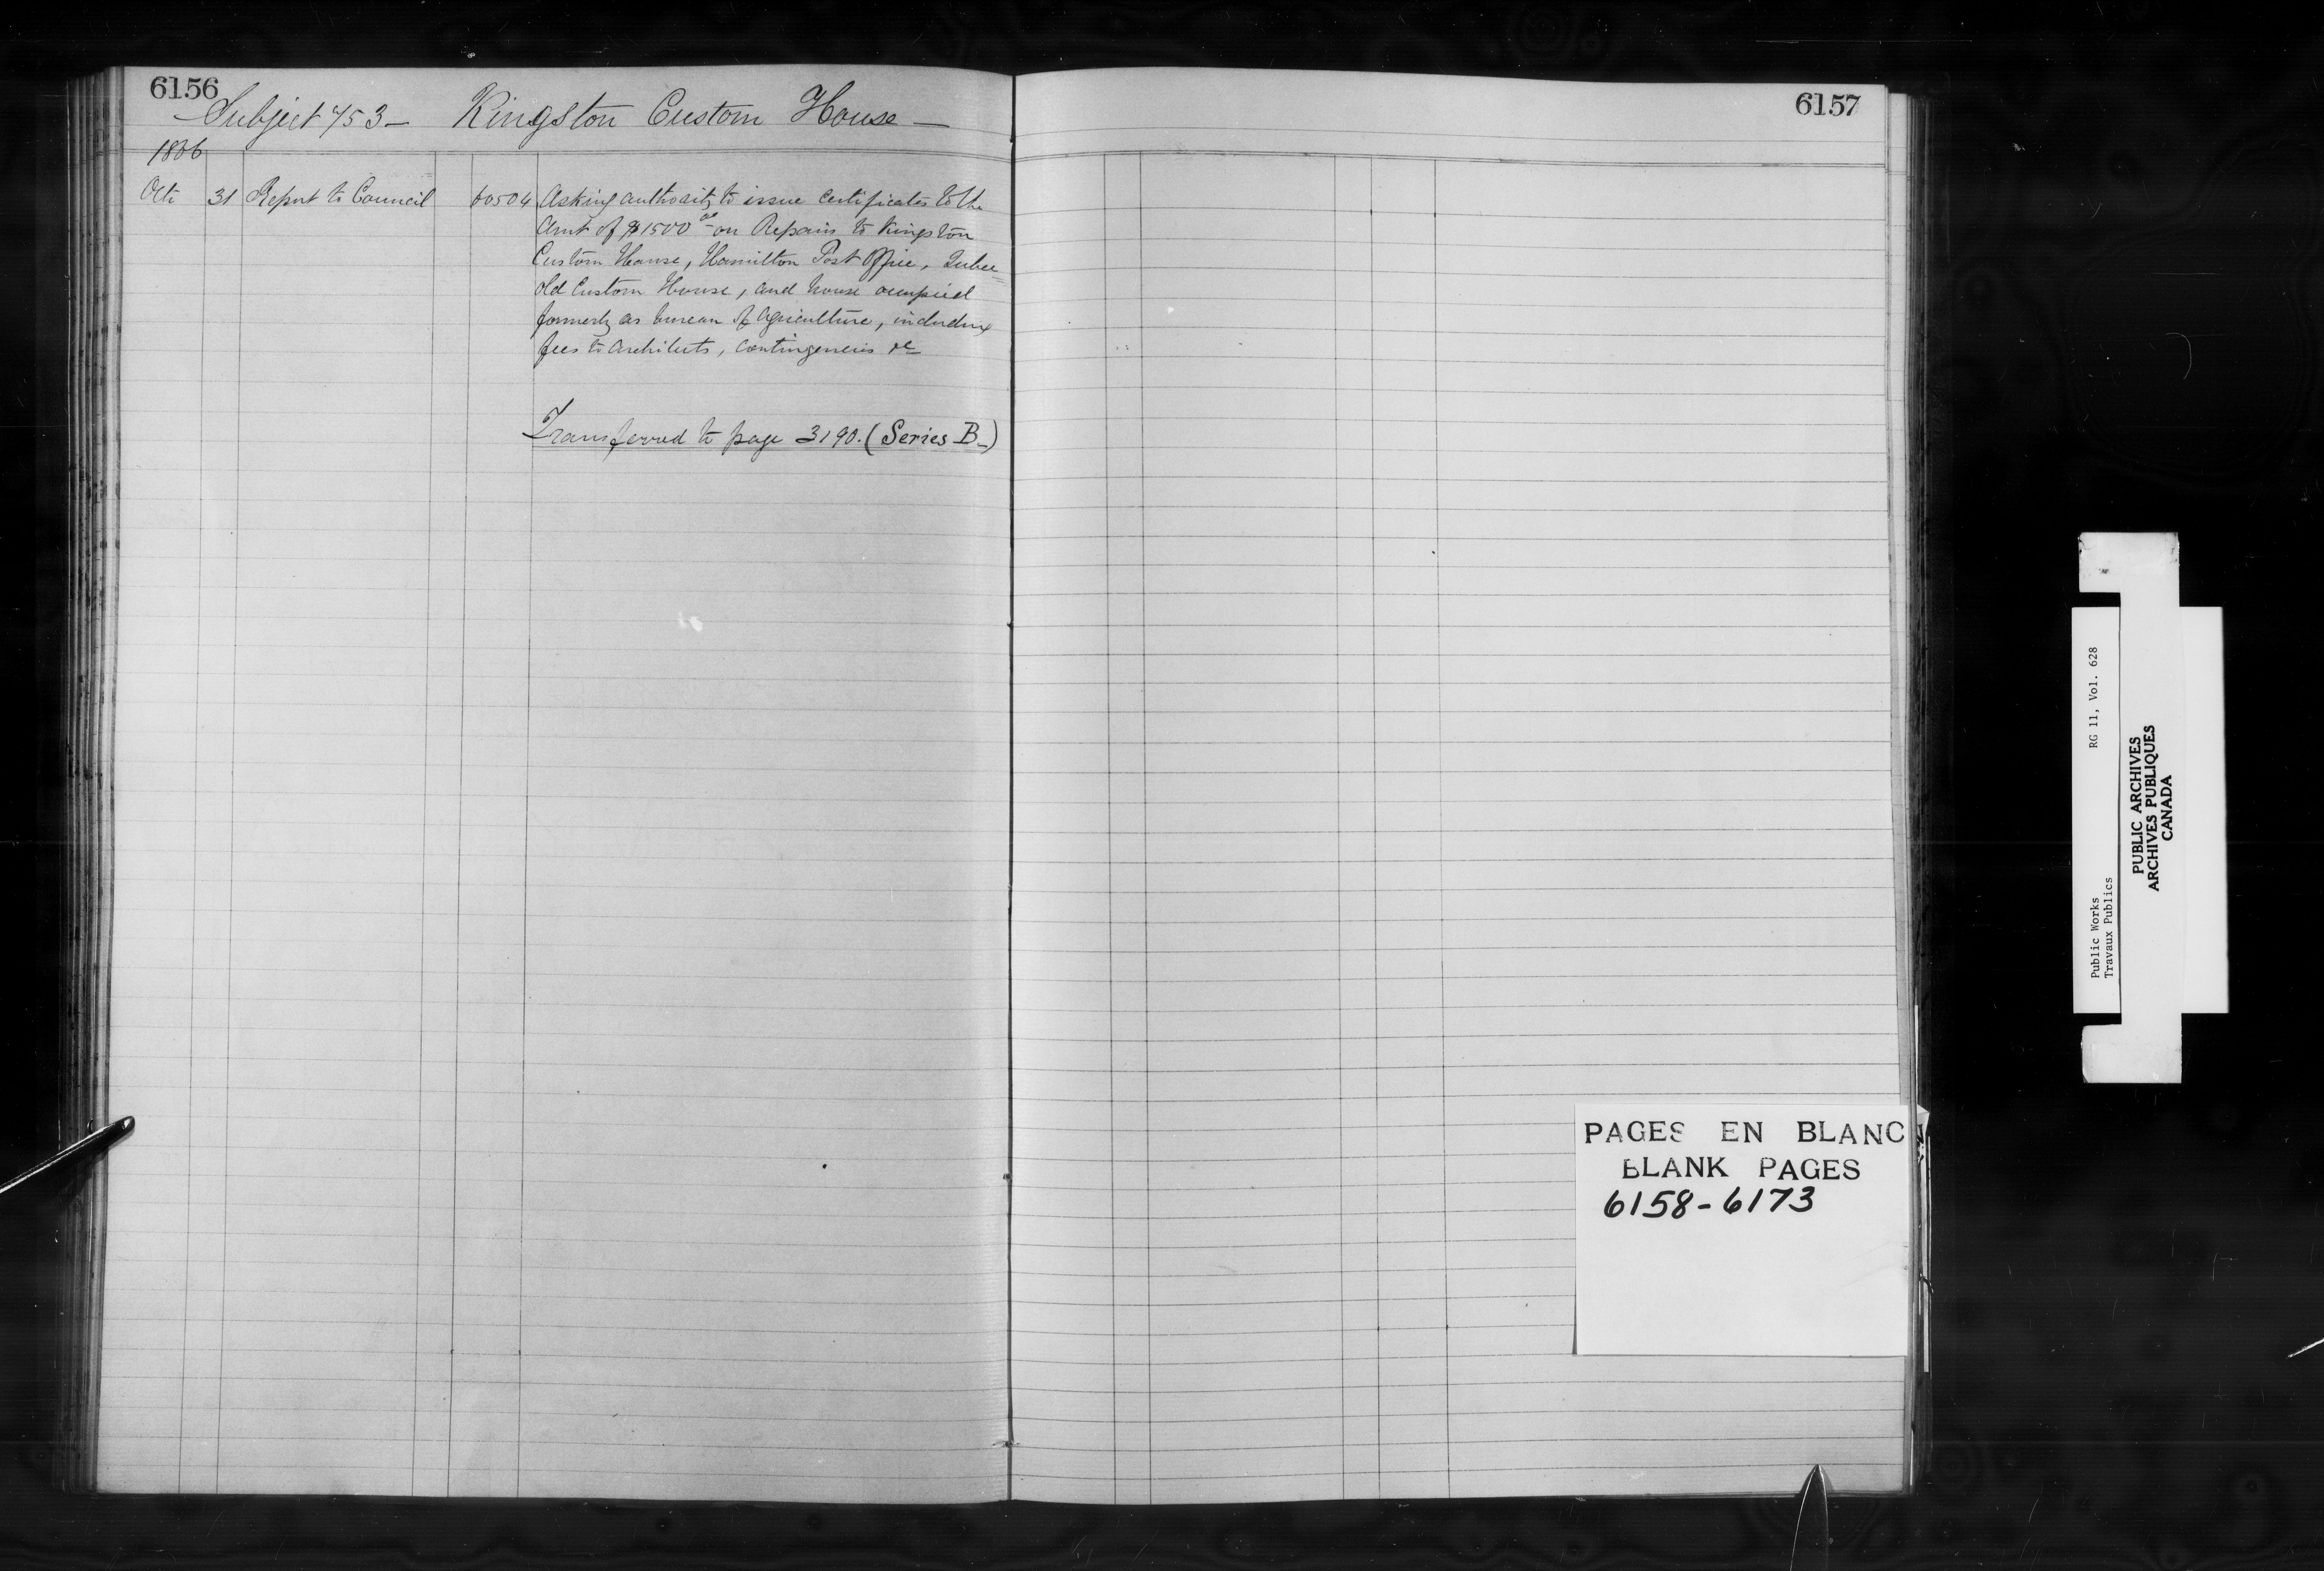 6156
Subject 753 - Kingston Custom House -
1866
Oct 31 Report to Council 60504 Asking authority to issue certificates to the
Amt of $1500 00 on Repairs to Kingston
Custom House, Hamilton Post Office, Quebec
old Custom House, and house occupied
formerly as bureau of Agriculture, including
fees to Architects, contingencies &c
Transferred to page 3190. (Series B-)
6157
PAGES EN BLANC
BLANK PAGES
6158-6173
Public Works RG 11, Vol. 628
Travaux Publics
PUBLIC ARCHIVES
ARCHIVES PUBLIQUES
CANADA